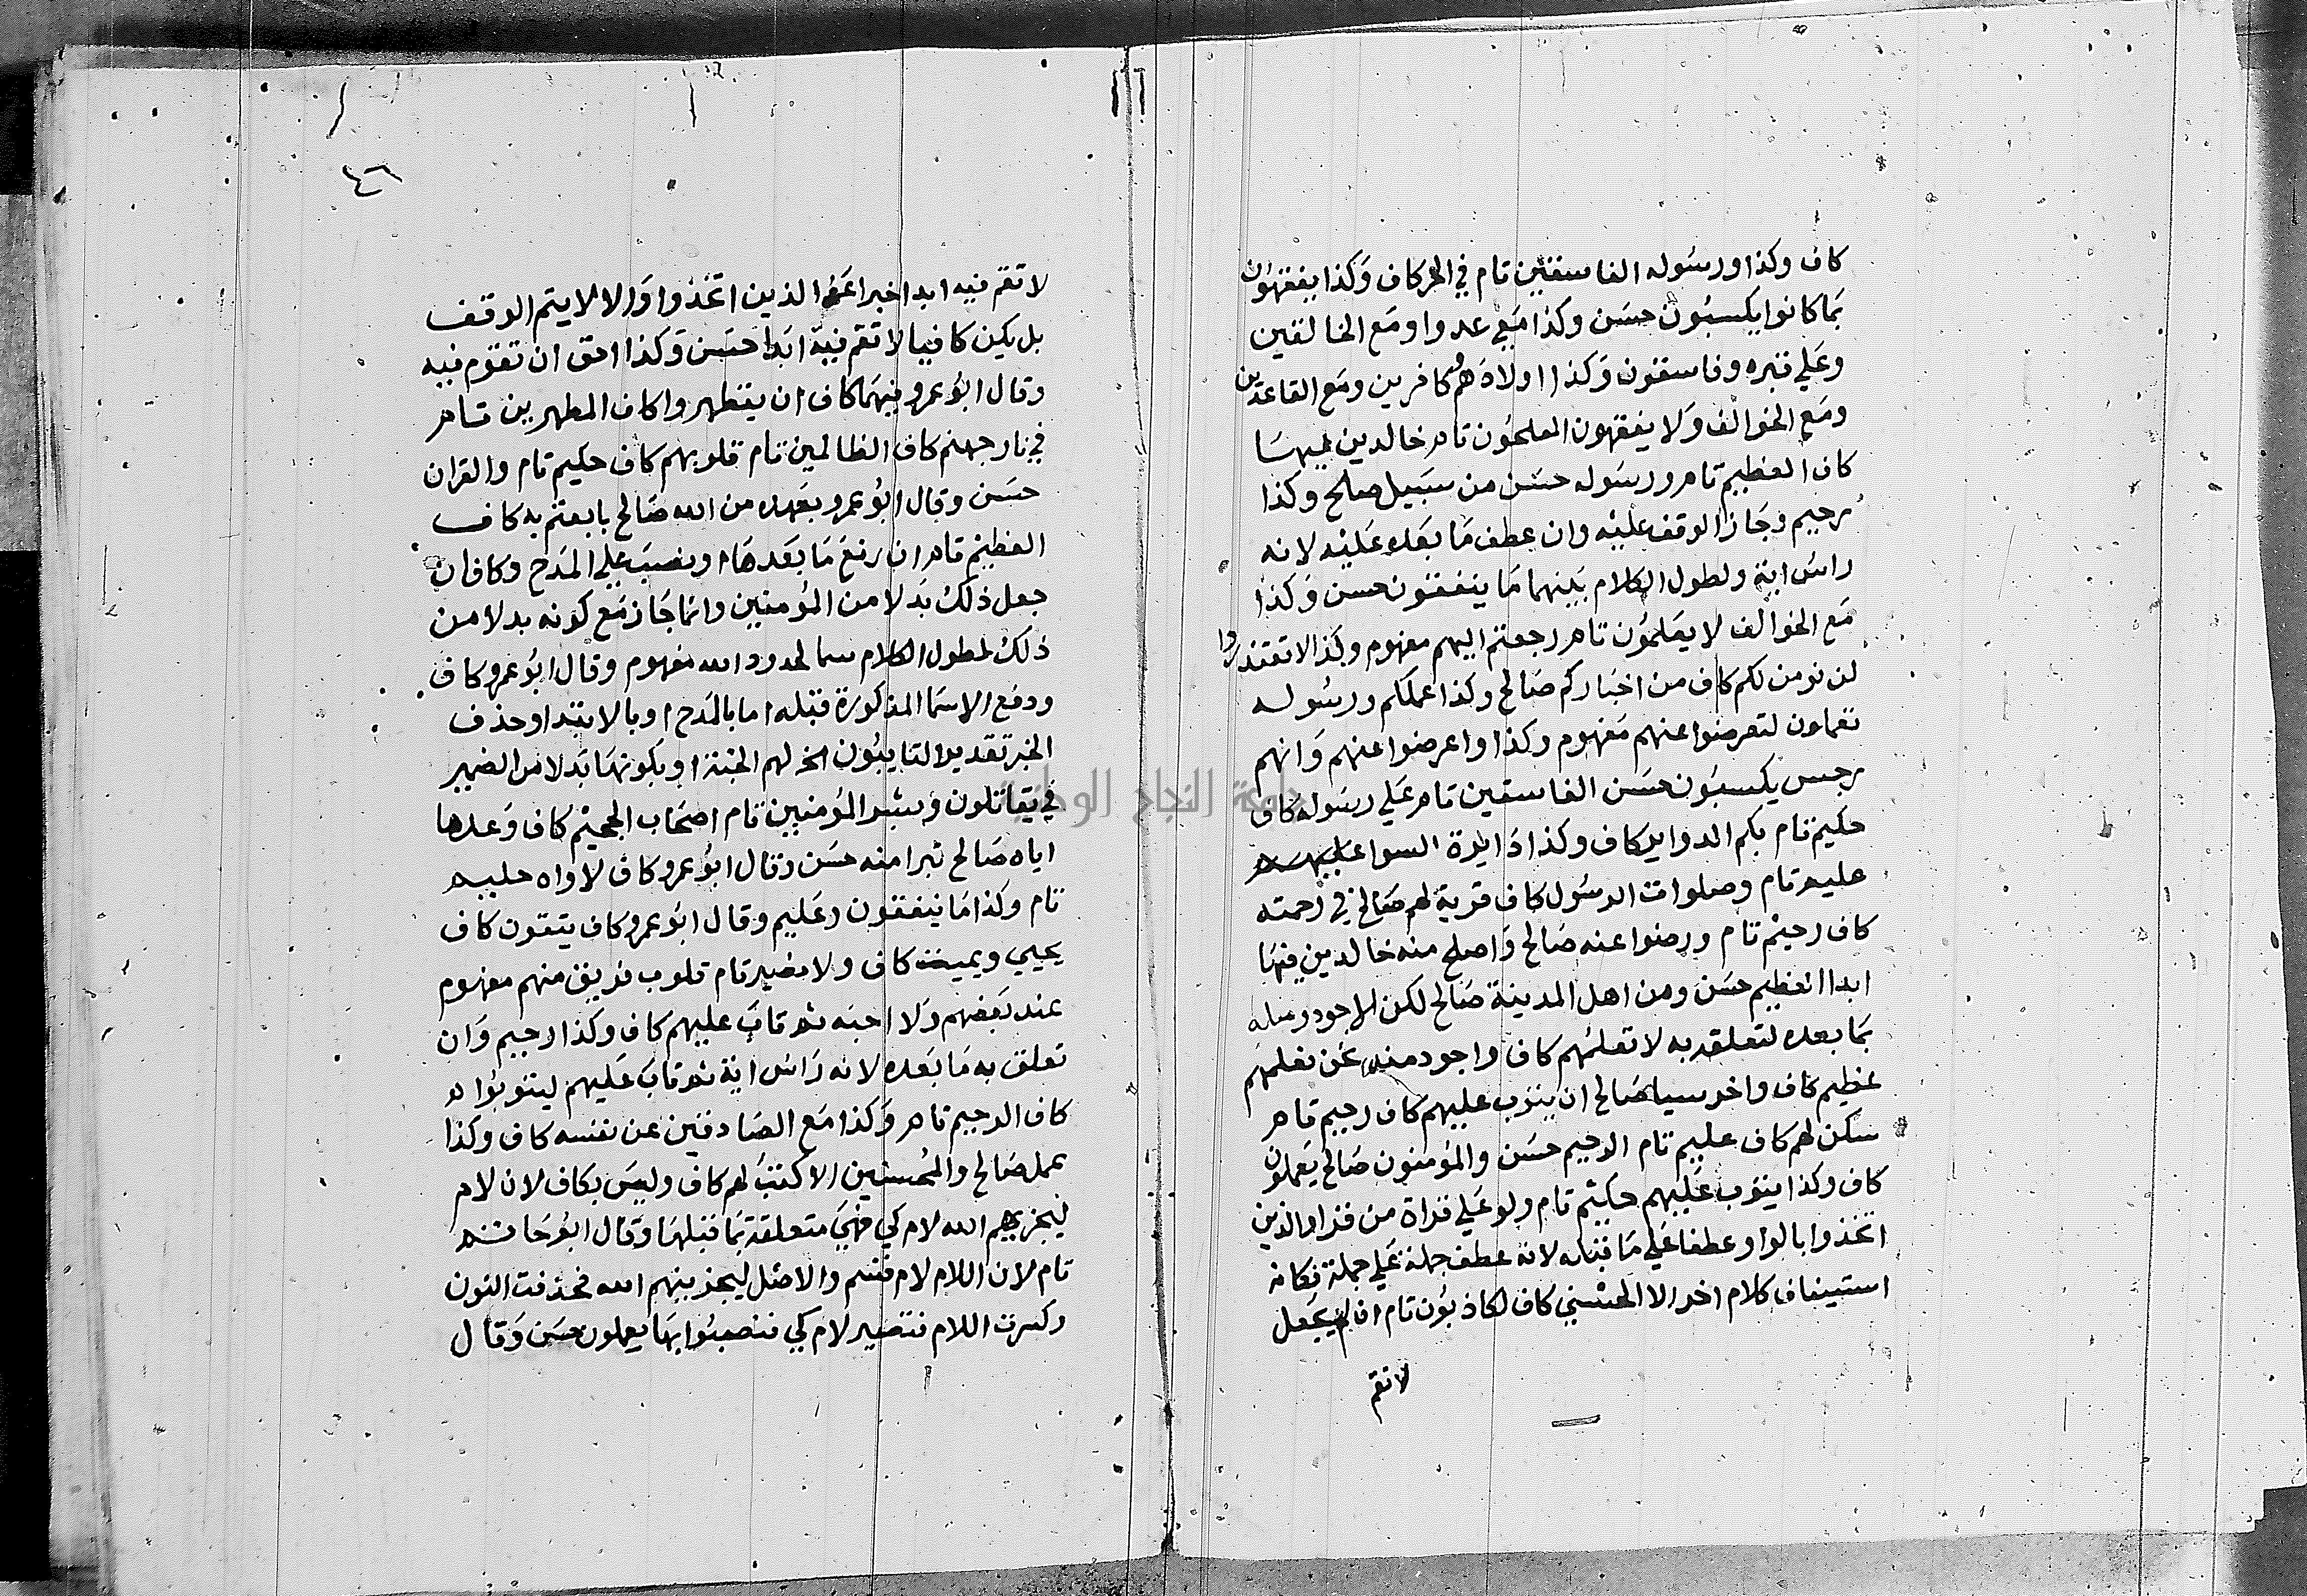 كاف وكذا ورسوله الفاسقين تام في الحر كاف وكذا يفقهون
بما كانوا يكسبون حسن وكذا معي عدوا ومع الخالفين
وعلي قبره وفاسقون وكذا اولادهم كافرين ومع القاعدين
ومع الخوالف ولا يفقهون المفلحون تام خالدين فيها
كاف العظيم تام ورسوله حسن من سبيل صلح وكذا
رحيم وجاز الوقف عليه وان عطف ما بعده عليه لانه
راس اية ولطول الكلام بينهما ما ينفقون حسن وكذا
مع الخوالف لا يعلمون تام رجعتم اليهم مفهوم وكذا لا تعتذروا
لن نومن لكم كاف من اخباركم صالح وكذا عملكم ورسوله
تعملون لتعرضوا عنهم مفهوم وكذا واعرضوا عنهم وانهم
رجس يكسبون حسن الفاسقين تام علي رسوله كاف
حكيم تام بكم الدواير كاف وكذا دايرة السوا عليهم
عليم تام وصلوات الرسول كاف قربة لهم صالح في رحمته
كاف رحيم تام ورضوا عنه صالح واصلح منه خالدين فيها
ابدا العظيم حسن ومن اهل المدينة صالح لكن الاجود وصله
بما بعده لتعلقه به لا تعلمهم كاف واجود منه نحن نعلمهم
عظيم كاف واخر سيا صالح ان يتوب عليهم كاف رحيم تام
سكن لهم كاف عليم تام الرحيم حسن والمؤمنون صالح يعملون
كاف وكذا يتوب عليهم حكيم تام ولو علي قراة من قرا والذين
اتخذوا بالواو عطفا علي ما قبله لانه عطف جملة علي جملة فكانه
استيناف كلام اخر الا الحسني كاف لكاذبون تام ان لم يجعل
لا تقم
٤٦
لا تقم فيه ابدا خبرا عن الذين اتخذوا والا لا يتم الوقف
بل يكن كافيا لا تقم فيه ابدا حسن وكذا احق ان تقوم فيه
وقال ابو عمرو فيهما كاف ان يتطهروا كاف المطهرين تام
في نار جهنم كاف الظالمين تام قلوبهم كاف حكيم تام والقران
حسن وقال ابو عمرو بعهده من الله صالح بايعتم به كاف
العظيم تام ان رفع ما بعدها او نصب علي المدح وكاف ان
جعل ذلك بدلا من المؤمنين وانما جاز مع كونه بدلا من
ذلك لطول الكلام لحدود الله مفهوم وقال ابو عمرو كاف
ودفع الاسما المذكورة قبله اما بالمدح او بالابتدا وحذف
الخبر تقديره التايبون الخ لهم الجنة او بكونها بدلا من الضمير
في يقاتلون وبشر المؤمنين تام اصحاب الجحيم كاف وعدها
اياه صالح تبرا منه حسن وقال ابو عمرو كاف لاواه حليم
تام وكذا ما يتقون وعليم وقال ابو عمرو كاف يتقون كاف
يحيي ويميت كاف ولا نصير تام قلوب فريق منهم مفهوم
عند بعضهم ولا احبه ثم تاب عليهم كاف وكذا رحيم وان
تعلق به ما بعده لانه راس اية ثم تاب عليهم ليتوبوا
كاف الرحيم تام وكذا مع الصادقين عن نفسه كاف وكذا
عمل صالح والمحسنين الا كتب لهم كاف وليس بكاف لان لام
ليجزيهم الله لام كي فهي متعلقة بما قبلها وقال ابو حاتم
تام لان اللام لام قسم والاصل ليجزينهم الله فحذفت النون
وكسرت اللام فتصير لام كي فنصبوا بها يعملون حسن وقال